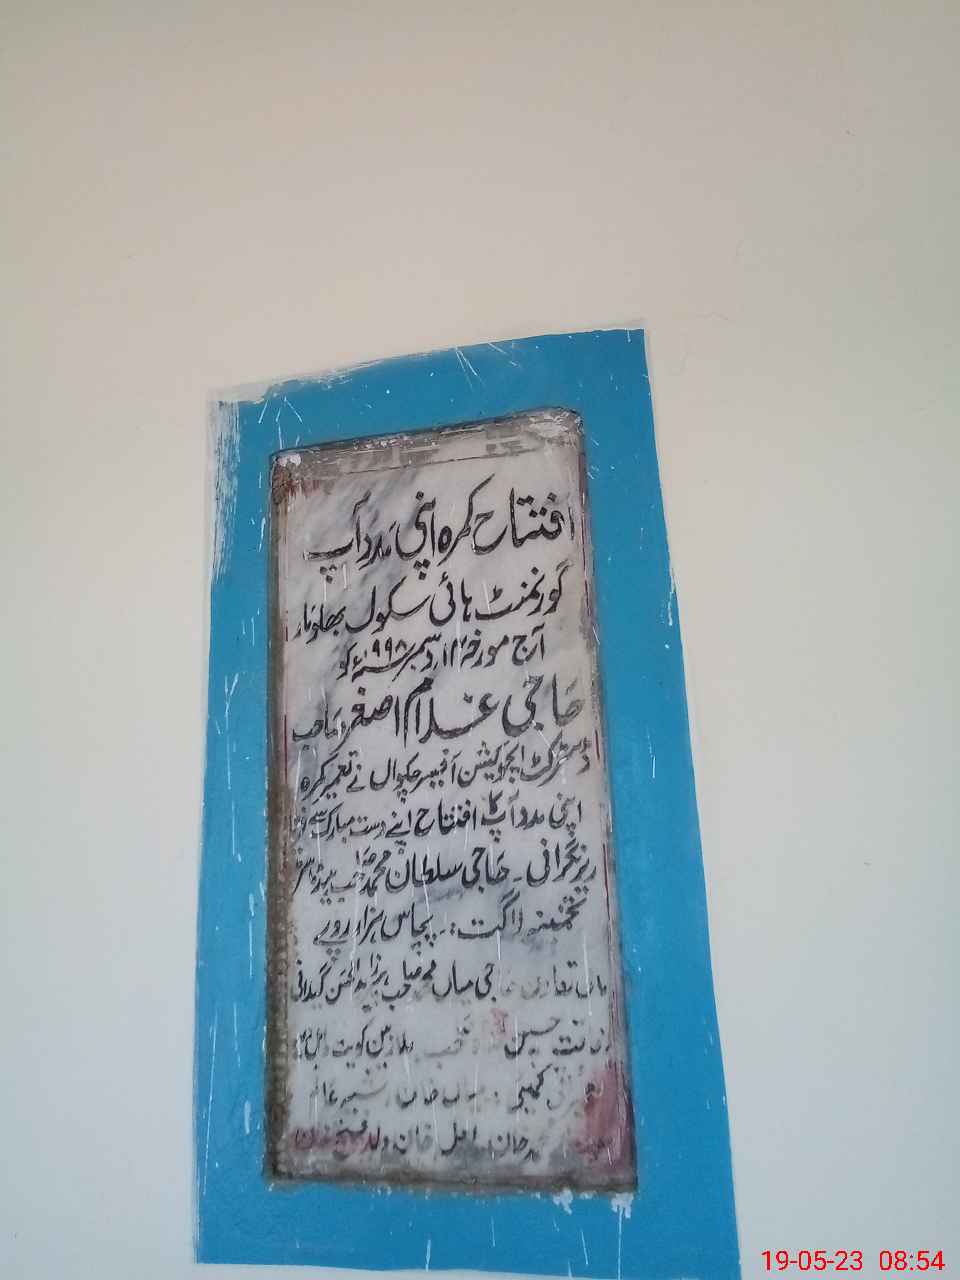 افتتاح کمرہ اپنی مدد آپ
گورنمنٹ ہائی سکول بھلومار
آج مورخہ ۱۲ دسمبر ۱۹۹۸ء کو
حاجی غلام اصغر صاحب
ڈسٹرکٹ ایجوکیشن آفیسر چکوال نے تعمیر کمرہ
اپنی مدد آپ کا افتتاح اپنے دست مبارک سے
زیر نگرانی ۔ حاجی سلطان محمد صاحب ہیڈ ماسٹر
تخمینہ لاگت :۔ پچاس ہزار روپے
تعاون حاجی میاں محمد صاحب
حسین ملازمین کویت
کمیٹی خان
خان ولد فتح خان
19-05-23 08:54